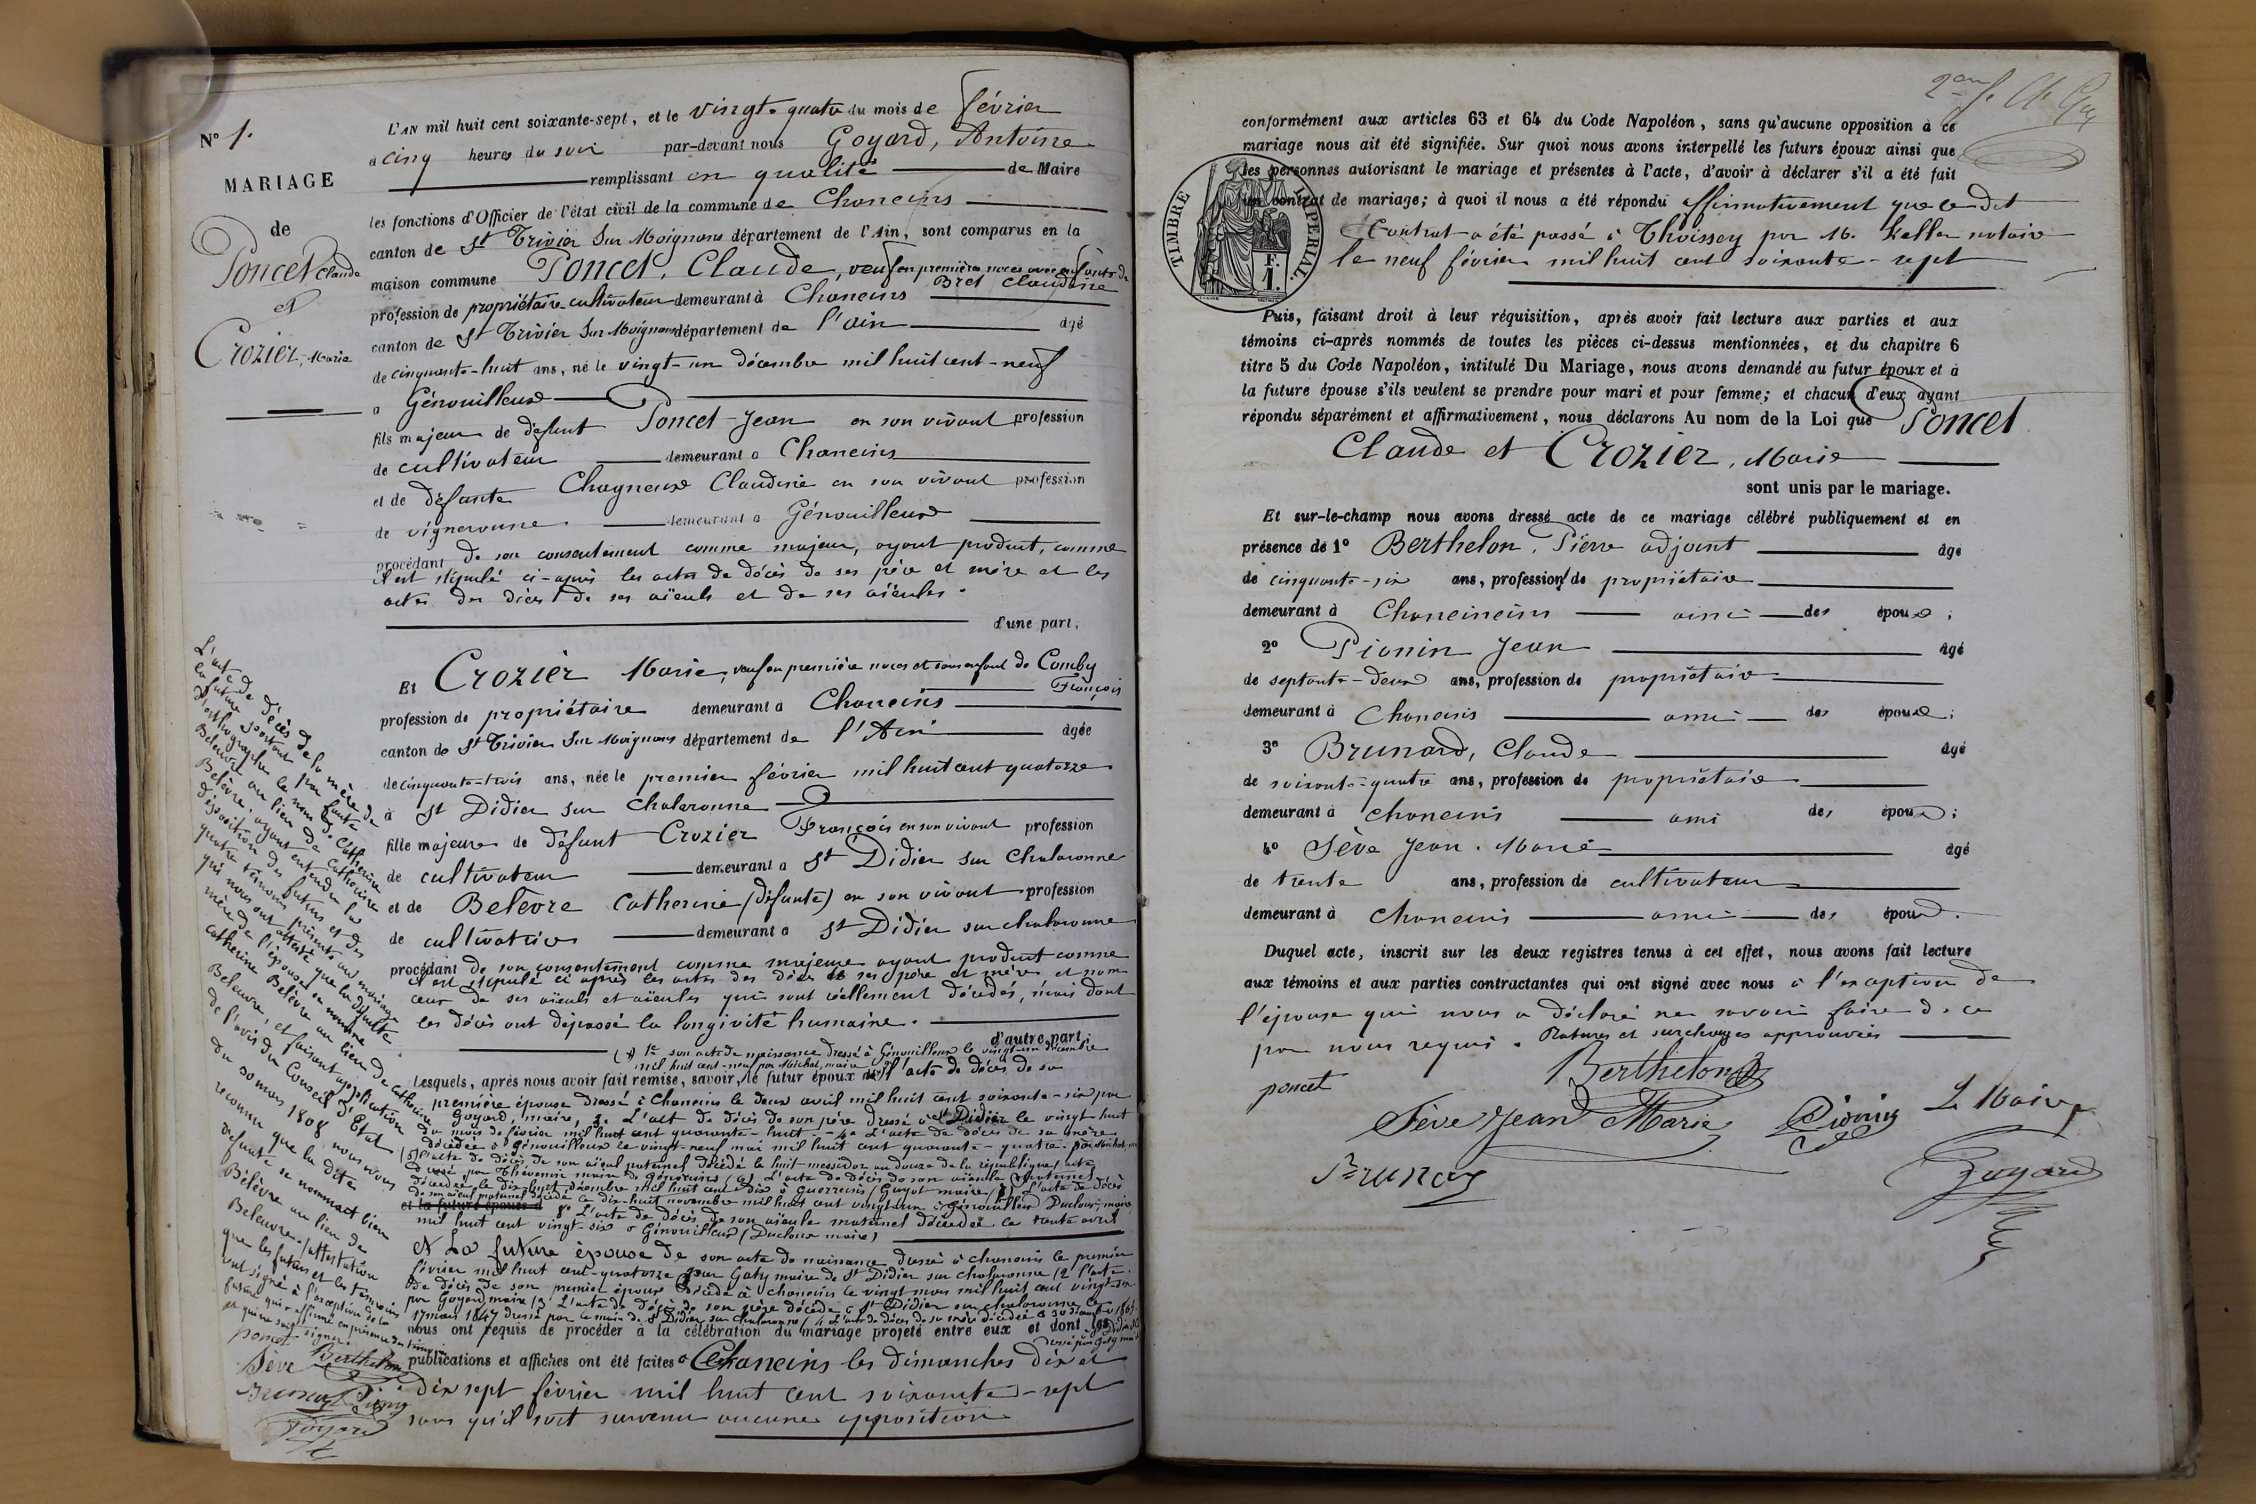 N° 1.
MARIAGE
de
Poncet Claude
et
Crozier, Marie
L'AN mil huit cent soixante-sept, et le vingt-quatre du mois de février
à cinq heures du soir par-devant nous Goyard, Antoine
remplissant en qualité de Maire
les fonctions d'Officier de l'état civil de la commune de Chaneins
canton de St Trivier sur Moignans département de l'Ain, sont comparus en la
maison commune Poncet, Claude, veuf en premières noces avec enfants de
Bret Claudine
profession de propriétaire-cultivateur demeurant à Chaneins
canton de St Trivier sur Moignans département de l'ain âgé
de cinquante-huit ans, né le vingt-un décembre mil huit cent-neuf
à Génouilleux
fils majeur de défunt Poncet Jean en son vivant profession
de cultivateur demeurant à Chaneins
et de défunte Chagneux Claudine en son vivant profession
de vigneronne. demeurant à Génouilleux
procédant de son consentement comme majeur, ayant produit, comme
il est stipulé ci-après les actes de décès de ses père et mère et les
actes de décès de ses aïeuls et de ses aïeules.
d'une part,
Et Crozier Marie, veuf en première noces et sans enfant de Comby
François
profession de propriétaire demeurant à Chaneins
canton de St Trivier sur Moignans département de l'Ain âgée
de cinquante-trois ans, née le premier février mil huit cent quatorze
à St Didier sur Chalaronne
fille majeure de défunt Crozier François en son vivant profession
de cultivateur demeurant à St Didier sur Chalaronne
et de Belèvre Catherine (défunte) en son vivant profession
de cultivatrice demeurant à St Didier sur chalaronne
procédant de son consentement comme majeure ayant produit comme
il est stipulé ci après les actes des décès de ses père et mère et non
ceux de ses aïeuls et aïeules qui sont réellement décédés, mais dont
les décès ont dépassé la longivité humaine.
d'autre part;
1re son acte de naissance dressé à Génouilleux le vingt-un décembre
mil huit cent-neuf par Michel, maire
Lesquels, après nous avoir fait remise, savoir, le futur époux l'acte de décès de sa
première épouse dressé à Chaneins le deux avril mil huit cent soixante-six par
Goyard, maire, 3. L'act de décès de son père dressé à St Didier le vingt-huit
du mois de février mil huit cent quarante-huit - 4e L'acte de décès de sa mère
décédée à Génouilleux le vingt-neuf mai mil huit cent quarante-quatre
l'acte de décès de son aïeul paternel décédé le huit messidor an douze de la république
décédée le dix-huit décembre mil huit cent dix à Guerreins (Guyot maire) L'acte de décès
de son aïeul maternel décédé le dix-huit novembre mil huit cent vingt-un à Génouilleux Ducloux, maire
et la future épouse d 8e L'acte de décès de son aïeule maternel décédée le trente avril
mil huit cent vingt-six à Génouilleux (Ducloux maire)
et La future épouse de son acte de naissance dressé à chaneins le premier
février mil huit cent-quatorze par Gaty maire de St Didier sur chalaronne (2 l'acte
de décès de son premier époux décédé à chaneins le vingt mars mil huit cent vingt-six
par Goyard maire (3 L'acte de décès de son père décédé à St Didier sur chalaronne le
17 mars 1847 dressé par le maire de St Didier sur chalaronne
nous ont requis de procéder à la célébration du mariage projeté entre eux et dont les
publications et affiches ont été faites à Chaneins les dimanches dix et
dix sept février mil huit cent soixante-sept
sans qu'il soit survenu aucune opposition
L'acte de décès de la mère de
la future portant par faute
d'orthographe le nom de Catherine
Beleuvre au lieu de Catherine
Belèvre, ayant entendu la
déposition des futurs et des
quatre témoins présents au mariage
qui nous ont attesté que la défunte
mère de l'épouse se nomme
Catherine Belèvre au lieu de Catherine
Beleuvre, et faisant application
de l'avis du Conseil d'Etat
du 30 mars 1808, nous avons
reconnu que la dite
défunte se nommait bien
Belèvre au lieu de
Beleuvre. (attestation
que les futurs et les témoins
ont signé à l'exception de la
future qui a affirmé en présence des témoins
poncet
Sève Berthelon
Goyard
conformément aux articles 63 et 64 du Code Napoléon, sans qu'aucune opposition à ce
mariage nous ait été signifiée. Sur quoi nous avons interpellé les futurs époux ainsi que
les personnes autorisant le mariage et présentes à l'acte, d'avoir à déclarer s'il a été fait
un contrat de mariage; à quoi il nous a été répondu affirmativement que ce dit
Contrat a été passé à Thoissey par M. Keller notaire
le neuf février mil huit cent soixante-sept
TIMBRE IMPERIAL.
1 F.
Puis, faisant droit à leur réquisition, après avoir fait lecture aux parties et aux
témoins ci-après nommés de toutes les pièces ci-dessus mentionnées, et du chapitre 6
titre 5 du Code Napoléon, intitulé Du Mariage, nous avons demandé au futur époux et à
la future épouse s'ils veulent se prendre pour mari et pour femme; et chacun d'eux ayant
répondu séparément et affirmativement, nous déclarons Au nom de la Loi que Poncet
Claude et Crozier, Marie
sont unis par le mariage.
Et sur-le-champ nous avons dressé acte de ce mariage célébré publiquement et en
présence de 1° Berthelon, Pierre adjoint âgé
de cinquante-six ans, profession de propriétaire
demeurant à Chaneineins ami des époux;
2° Pionin Jean âgé
de septante-deux ans, profession de propriétaire
demeurant à Chaneins ami des époux;
3° Brunard, Claude âgé
de soixante-quatre ans, profession de propriétaire
demeurant à chaneins ami des époux;
4° Sève Jean-Marie âgé
de trente ans, profession de cultivateur
demeurant à Chaneins ami des époux.
Duquel acte, inscrit sur les deux registres tenus à cet effet, nous avons fait lecture
aux témoins et aux parties contractantes qui ont signé avec nous à l'exception de
l'épouse qui nous a déclaré ne savoir faire de ce
par nous requis. Ratures et surcharges approuvées
poncet Berthelon
Sève Jean Marie Pionin Le Maire
Brunard Goyard